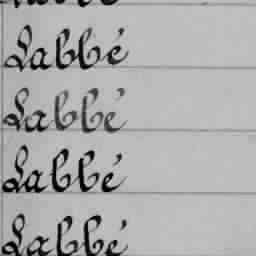 Labbé
Labbé
Labbé
Labbé